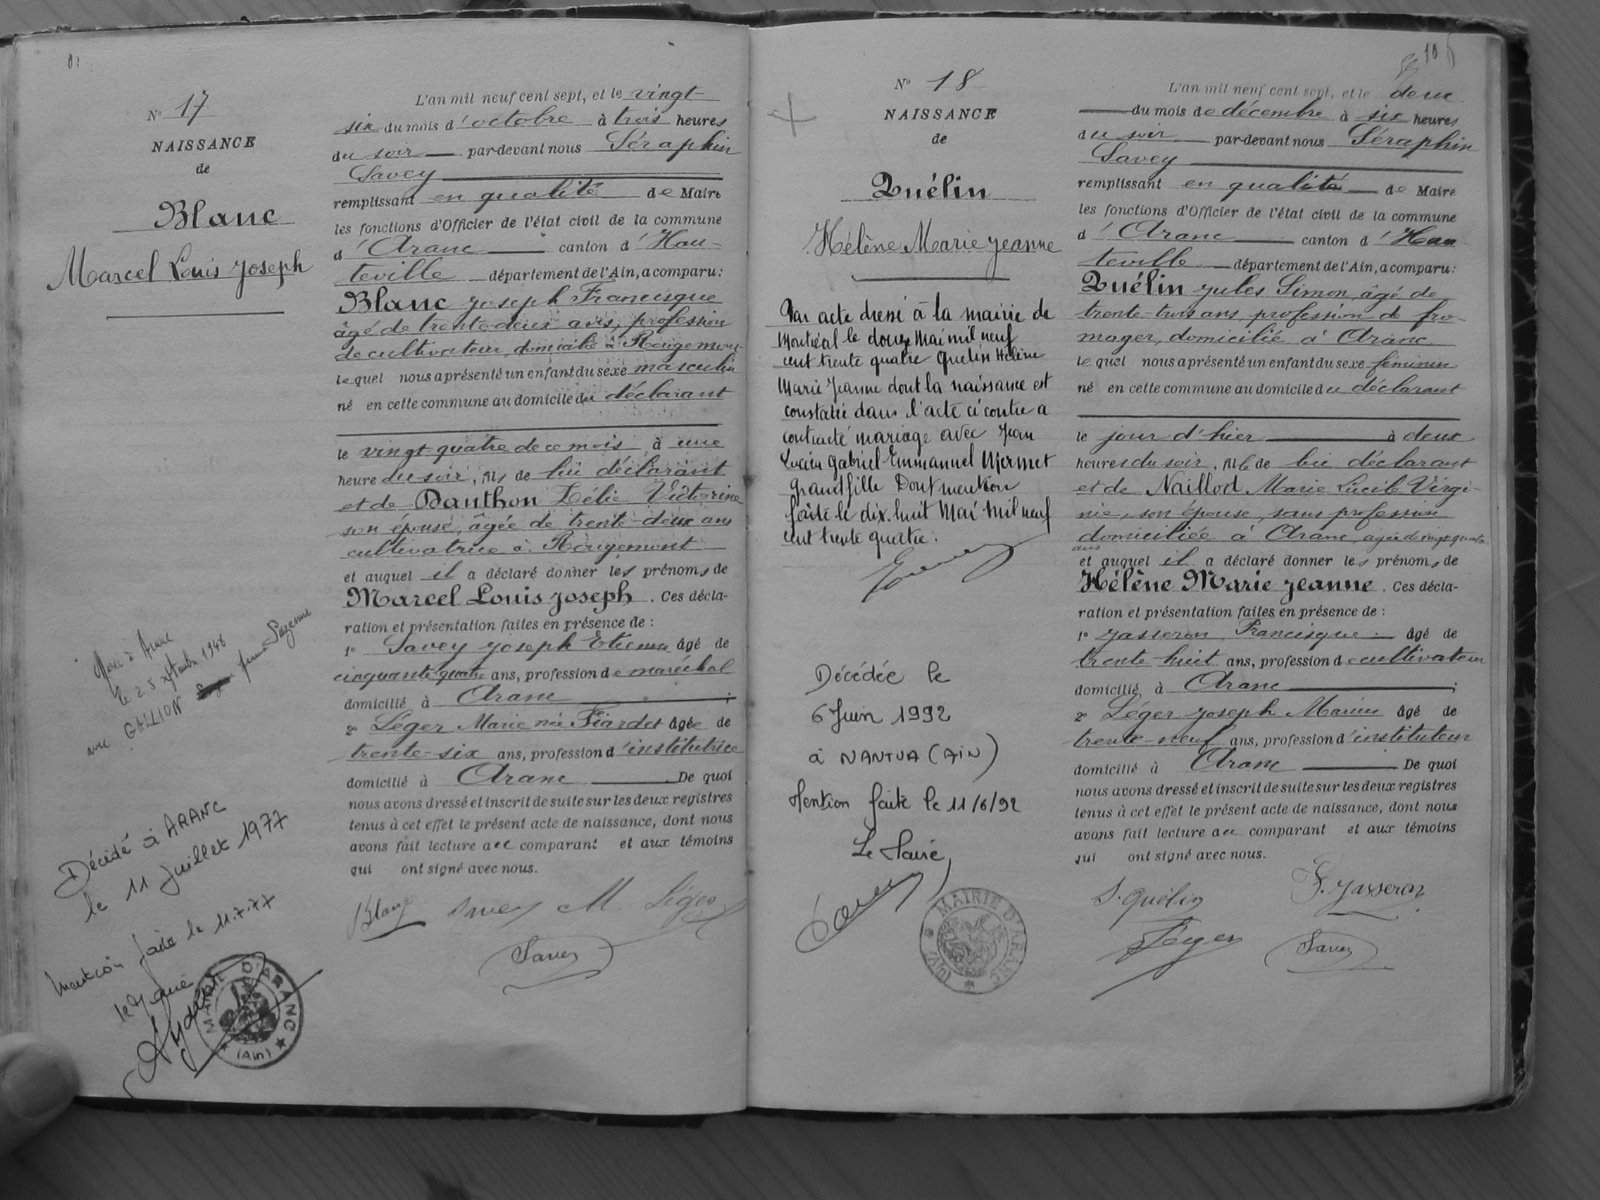 N° 17
NAISSANCE
de
Blanc
Marcel Louis Joseph
le 25 septembre 1946
GALLION
Décédé à ARANC
le 11 juillet 1977
Mention faite le 11.7.77
MAIRIE D'ARANC
(Ain)
L'an mil neuf cent sept, et le vingt-
six du mois d'octobre à trois heures
du soir par-devant nous Séraphin
Savey
remplissant en qualité de Maire
les fonctions d'Officier de l'état civil de la commune
d'Aranc canton d'Hau-
teville département de l'Ain, a comparu:
Blanc Joseph Francisque
âgé de trente-deux ans, profession
de cultivateur, domicilié à Rougemont
lequel nous a présenté un enfant du sexe masculin
né en cette commune au domicile du déclarant
le vingt quatre de ce mois à une
heure du soir, fils de lui déclarant
et de Danthon Délie Victorine
son épouse, âgée de trente-deux ans
cultivatrice à Rougemont
et auquel il a déclaré donner les prénoms de
Marcel Louis Joseph. Ces décla-
ration et présentation faites en présence de :
1° Savey Joseph Etienne âgé de
cinquante quatre ans, profession de maréchal
domicilié à Aranc ;
2° Léger Marie née Fiardet âgée de
trente-six ans, profession d'institutrice
domicilié à Aranc De quoi
nous avons dressé et inscrit de suite sur les deux registres
tenus à cet effet le présent acte de naissance, dont nous
avons fait lecture aux comparant et aux témoins
qui ont signé avec nous.
Blanc Savey M Léger
Savey
N° 18
NAISSANCE
de
Quélin
Hélène Marie Jeanne
Par acte dressé à la mairie de
Montréal le douze Mai mil neuf
cent trente quatre Quélin Hélène
Marie Jeanne dont la naissance est
constatée dans l'acte ci contre a
contracté mariage avec Jean
Lucien Gabriel Emmanuel Mermet
Grandfille Dont mention
faite le dix-huit Mai mil neuf
cent trente quatre.
Décédée le
6 Juin 1992
à NANTUA (AIN)
Mention faite le 11/6/92
Le Maire,
MAIRIE D'ARANC
(AIN)
10
L'an mil neuf cent sept, et le deux
du mois de décembre à six heures
du soir par-devant nous Séraphin
Savey
remplissant en qualité de Maire
les fonctions d'Officier de l'état civil de la commune
d'Aranc canton d'Hau
teville département de l'Ain, a comparu:
Quélin Jules Simon, âgé de
trente-trois ans, profession de fro-
mager, domiciliée à Aranc
lequel nous a présenté un enfant du sexe féminin
né en cette commune au domicile du déclarant
le jour d'hier à deux
heures du soir, fille de lui déclarant
et de Naillod Marie Lucile Virgi-
nie, son épouse, sans profession
domiciliée à Aranc, agée de vingt quatre
ans
et auquel il a déclaré donner les prénoms de
Hélène Marie Jeanne. Ces décla-
ration et présentation faites en présence de :
1° Jasseron Francisque âgé de
trente-huit ans, profession de cultivateur
domicilié à Aranc ;
2° Léger Joseph Marius âgé de
trente-neuf ans, profession d'instituteur
domicilié à Aranc De quoi
nous avons dressé et inscrit de suite sur les deux registres
tenus à cet effet le présent acte de naissance, dont nous
avons fait lecture aux comparant et aux témoins
qui ont signé avec nous.
S. Quélin F. Jasseron
Léger Savey